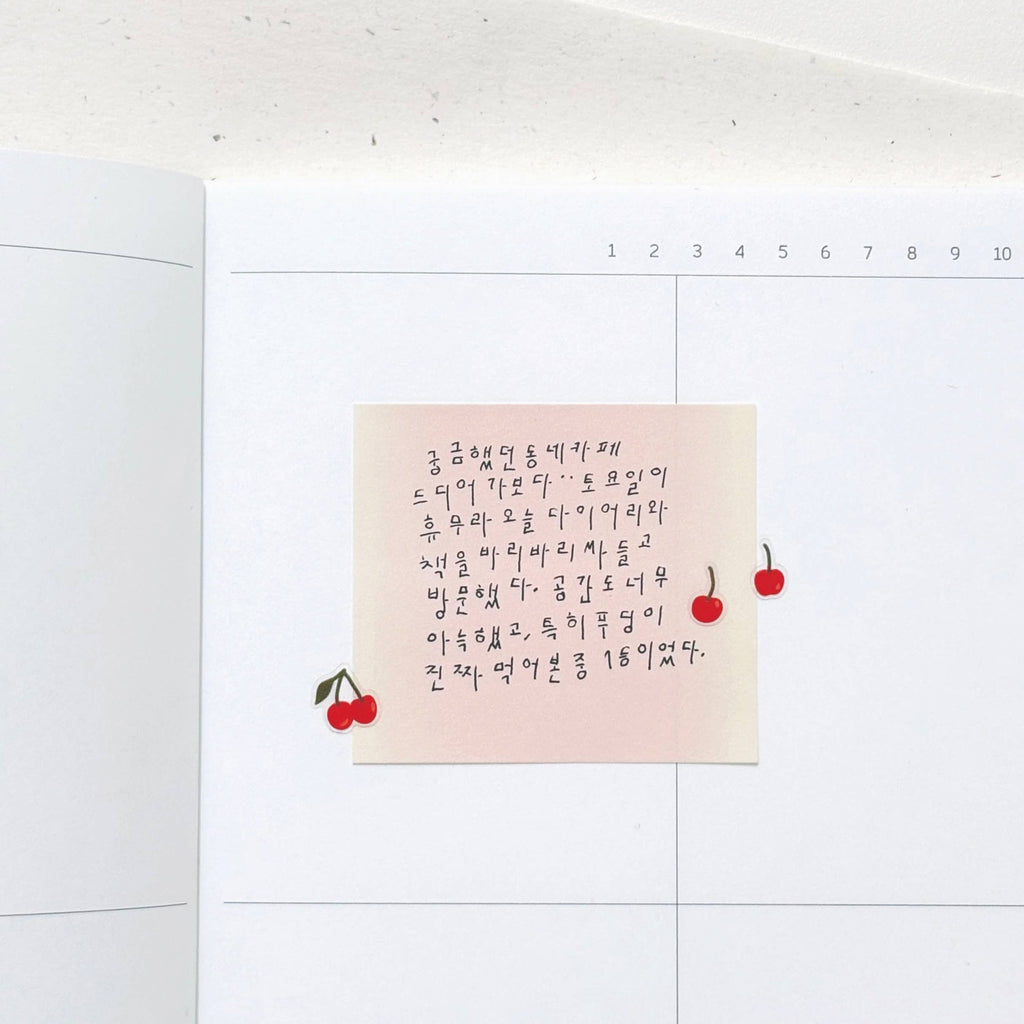 1 2 3 4 5 6 7 8 9 10
궁금했던 동네카페
드디어 가보다¨ 토요일이
휴무라 오늘 다이어리와
책을 바리바리 싸들고
방문했다. 공간도 너무
아늑했고, 특히 푸딩이
진짜 먹어본 중 1등이었다.